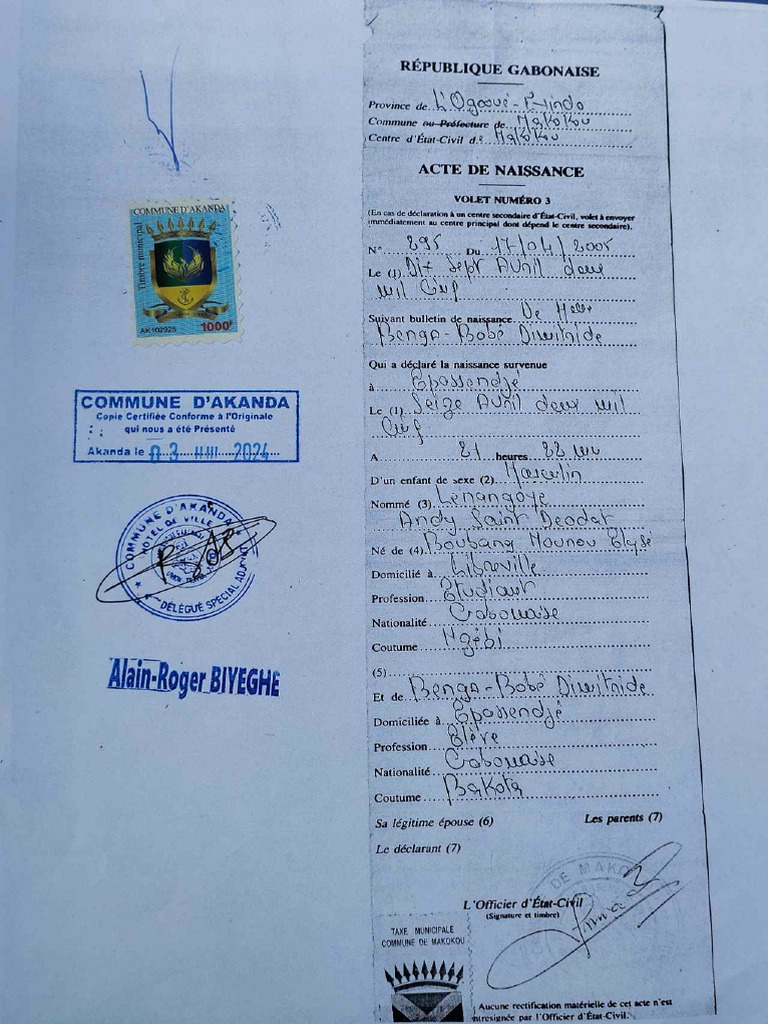 COMMUNE D'AKANDA
Timbre municipal
AK 102925
1000F
COMMUNE D'AKANDA
Copie Certifiée Conforme à l'Originale
qui nous a été Présenté
Akanda le 03 2024
COMMUNE D'AKANDA
HOTEL DE VILLE
DÉLÉGUÉ SPÉCIAL ADJOINT
Alain-Roger BIYEGHE
RÉPUBLIQUE GABONAISE
Province de L'Ogooué-Ivindo
Commune ou Préfecture de Makokou
Centre d'État-Civil de Makokou
ACTE DE NAISSANCE
VOLET NUMÉRO 3
(En cas de déclaration à un centre secondaire d'État-Civil, volet à envoyer
immédiatement au centre principal dont dépend le centre secondaire).
N° 295 Du 17/04/2005
Le (1) Dix Sept Avril deux
mil Cinq
Suivant bulletin de naissance De
Benga-Bobé
Qui a déclaré la naissance survenue
à Epassendjé
Le (1) Seize Avril deux mil
Cinq
A 21 heures 22 mn
D'un enfant de sexe (2) Masculin
Nommé (3) Lenangoye
Andy Saint Deodat
Né de (4) Boubang Mounou Elysé
Domicilié à Libreville
Profession Etudiant
Nationalité Gabonaise
Coutume Nzébi
(5)
Et de Benga-Bobé
Domiciliée à Epassendjé
Profession Elève
Nationalité Gabonaise
Coutume Bakota
Sa légitime épouse (6) Les parents (7)
Le déclarant (7)
DE MAKO
L'Officier d'État-Civil
(Signature et timbre)
TAXE MUNICIPALE
COMMUNE DE MAKOKOU
Aucune rectification matérielle de cet acte n'est
intresignée par l'Officier d'État-Civil.